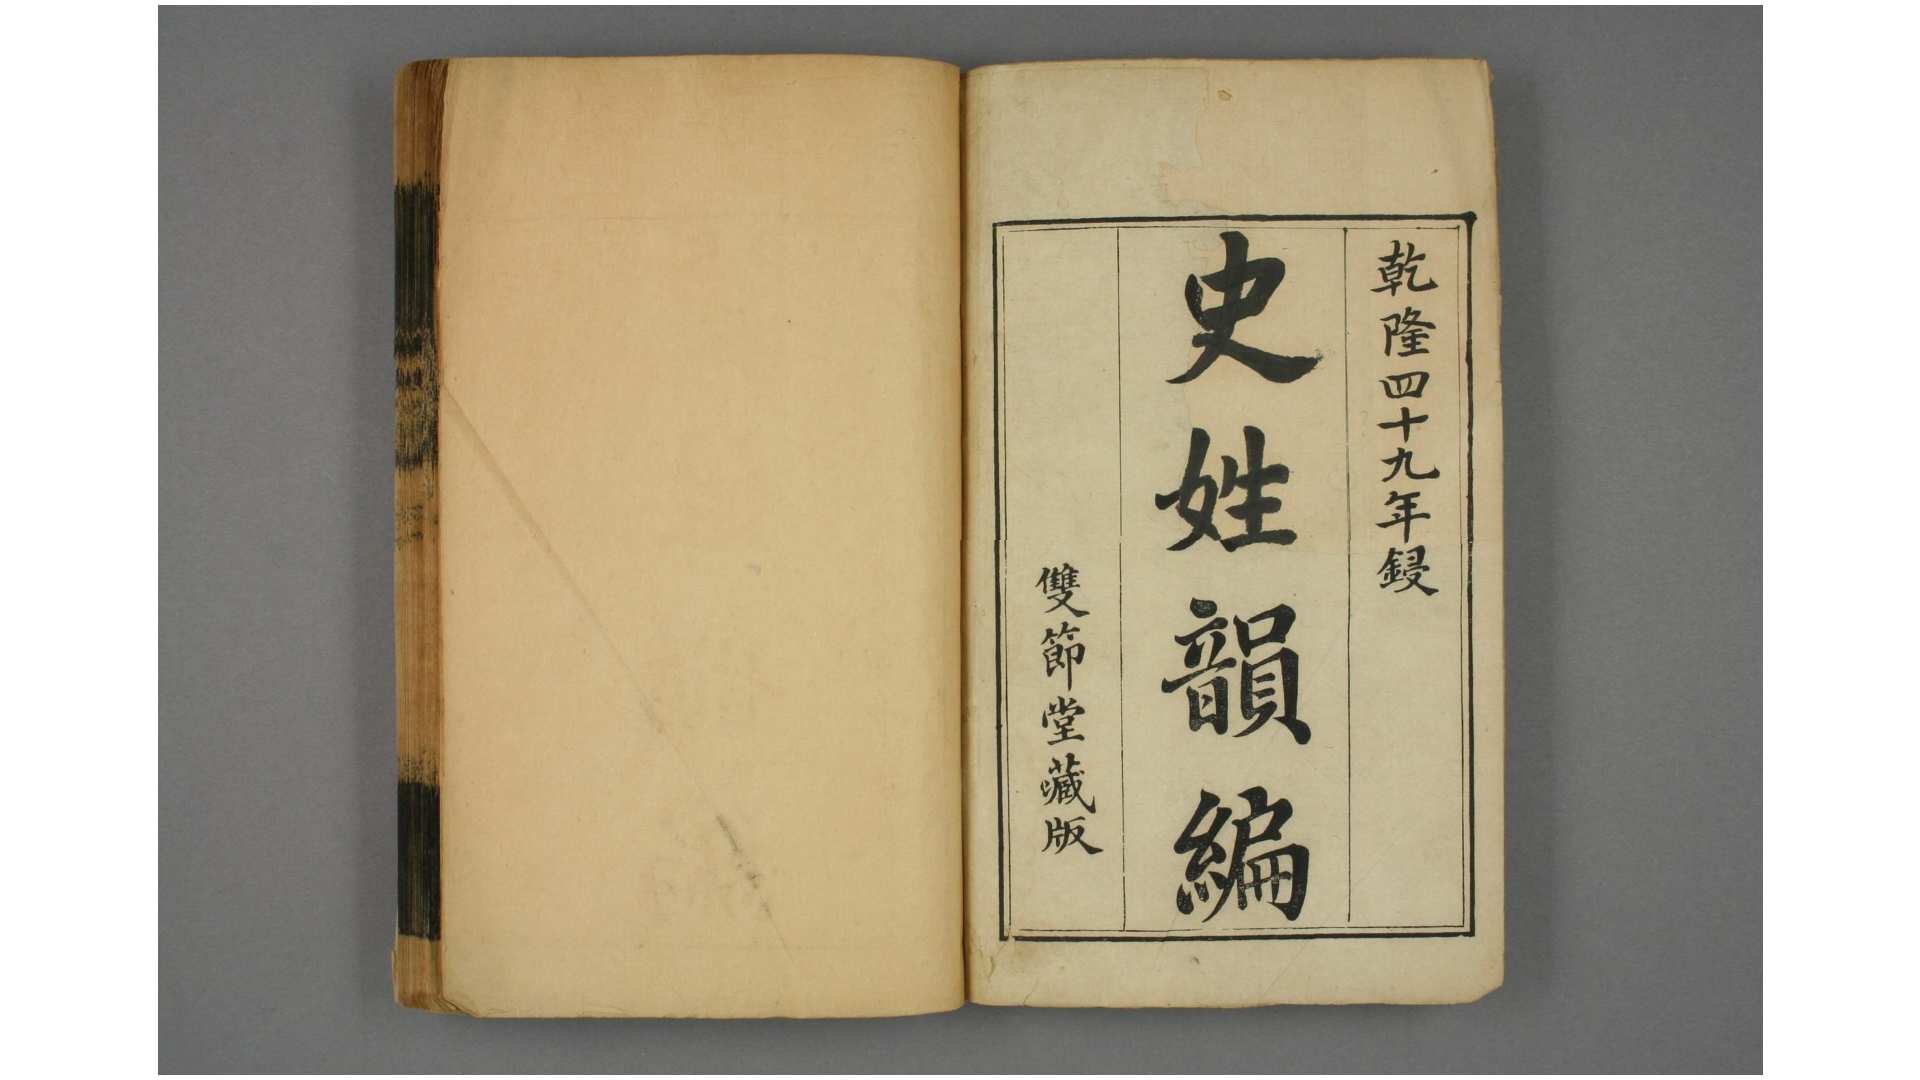 乾隆四十九年鋟
史姓韻編
雙節堂藏版